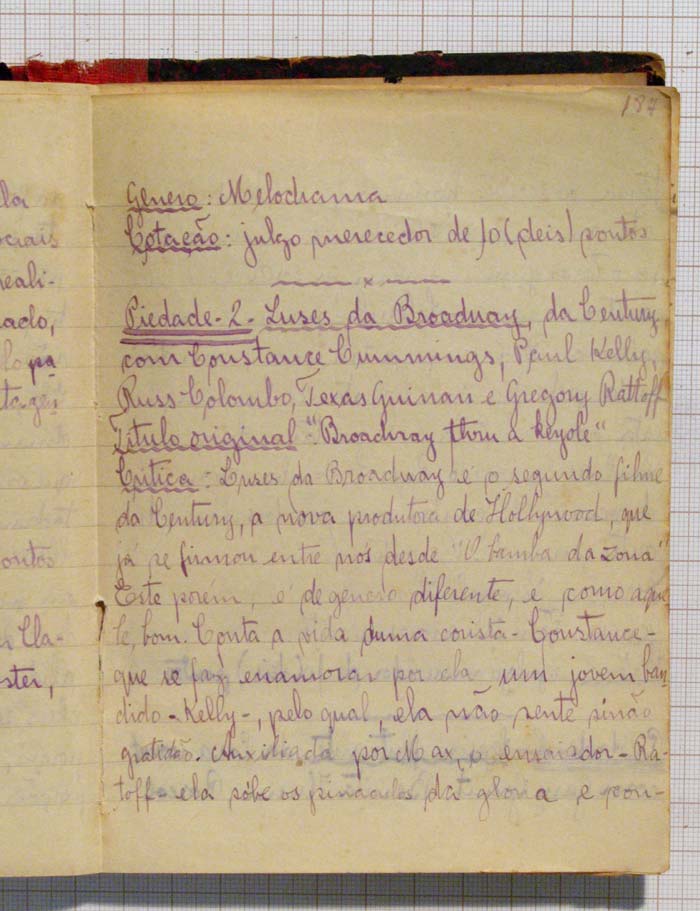 187
Genero: Melodrama
Cotação: julgo merecedor de 10 (deis) pontos
x
Piedade-2- Luses da Broadway, da Century
com Constance Cummings, Paul Kelly,
Russ Colombo, Texas Guinan e Gregory Rattoff
Titulo original "Broadway thru a keyole"
Critica: Luses da Broadway é o segundo filme
da Century, a nova produtora de Hollywood, que
já se firmou entre nós desde "O bamba da zona"
Este porém, é de genero diferente, é como aque
le, bom. Conta a vida duma corista - Constance -
que se faz enamorar por ela um jovem ban
dido - Kelly -, pelo qual, ela não sente sinão
gratidão. Auxiliada por Max, o ensaiador - Ra-
toff - ela sóbe os pinaculos da gloria e pon-
la
ociais
reali-
nado,
pa
tagen
ontos
Cla-
ster,